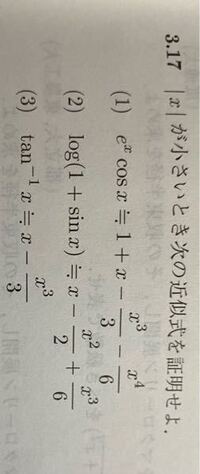 3.17 |x| が小さいとき次の近似式を証明せよ.
(1) e^x cos x ≒ 1 + x − x^3/3 − x^4/6
(2) log(1 + sin x) ≒ x − x^2/2 + x^3/6
(3) tan^−1 x ≒ x − x^3/3